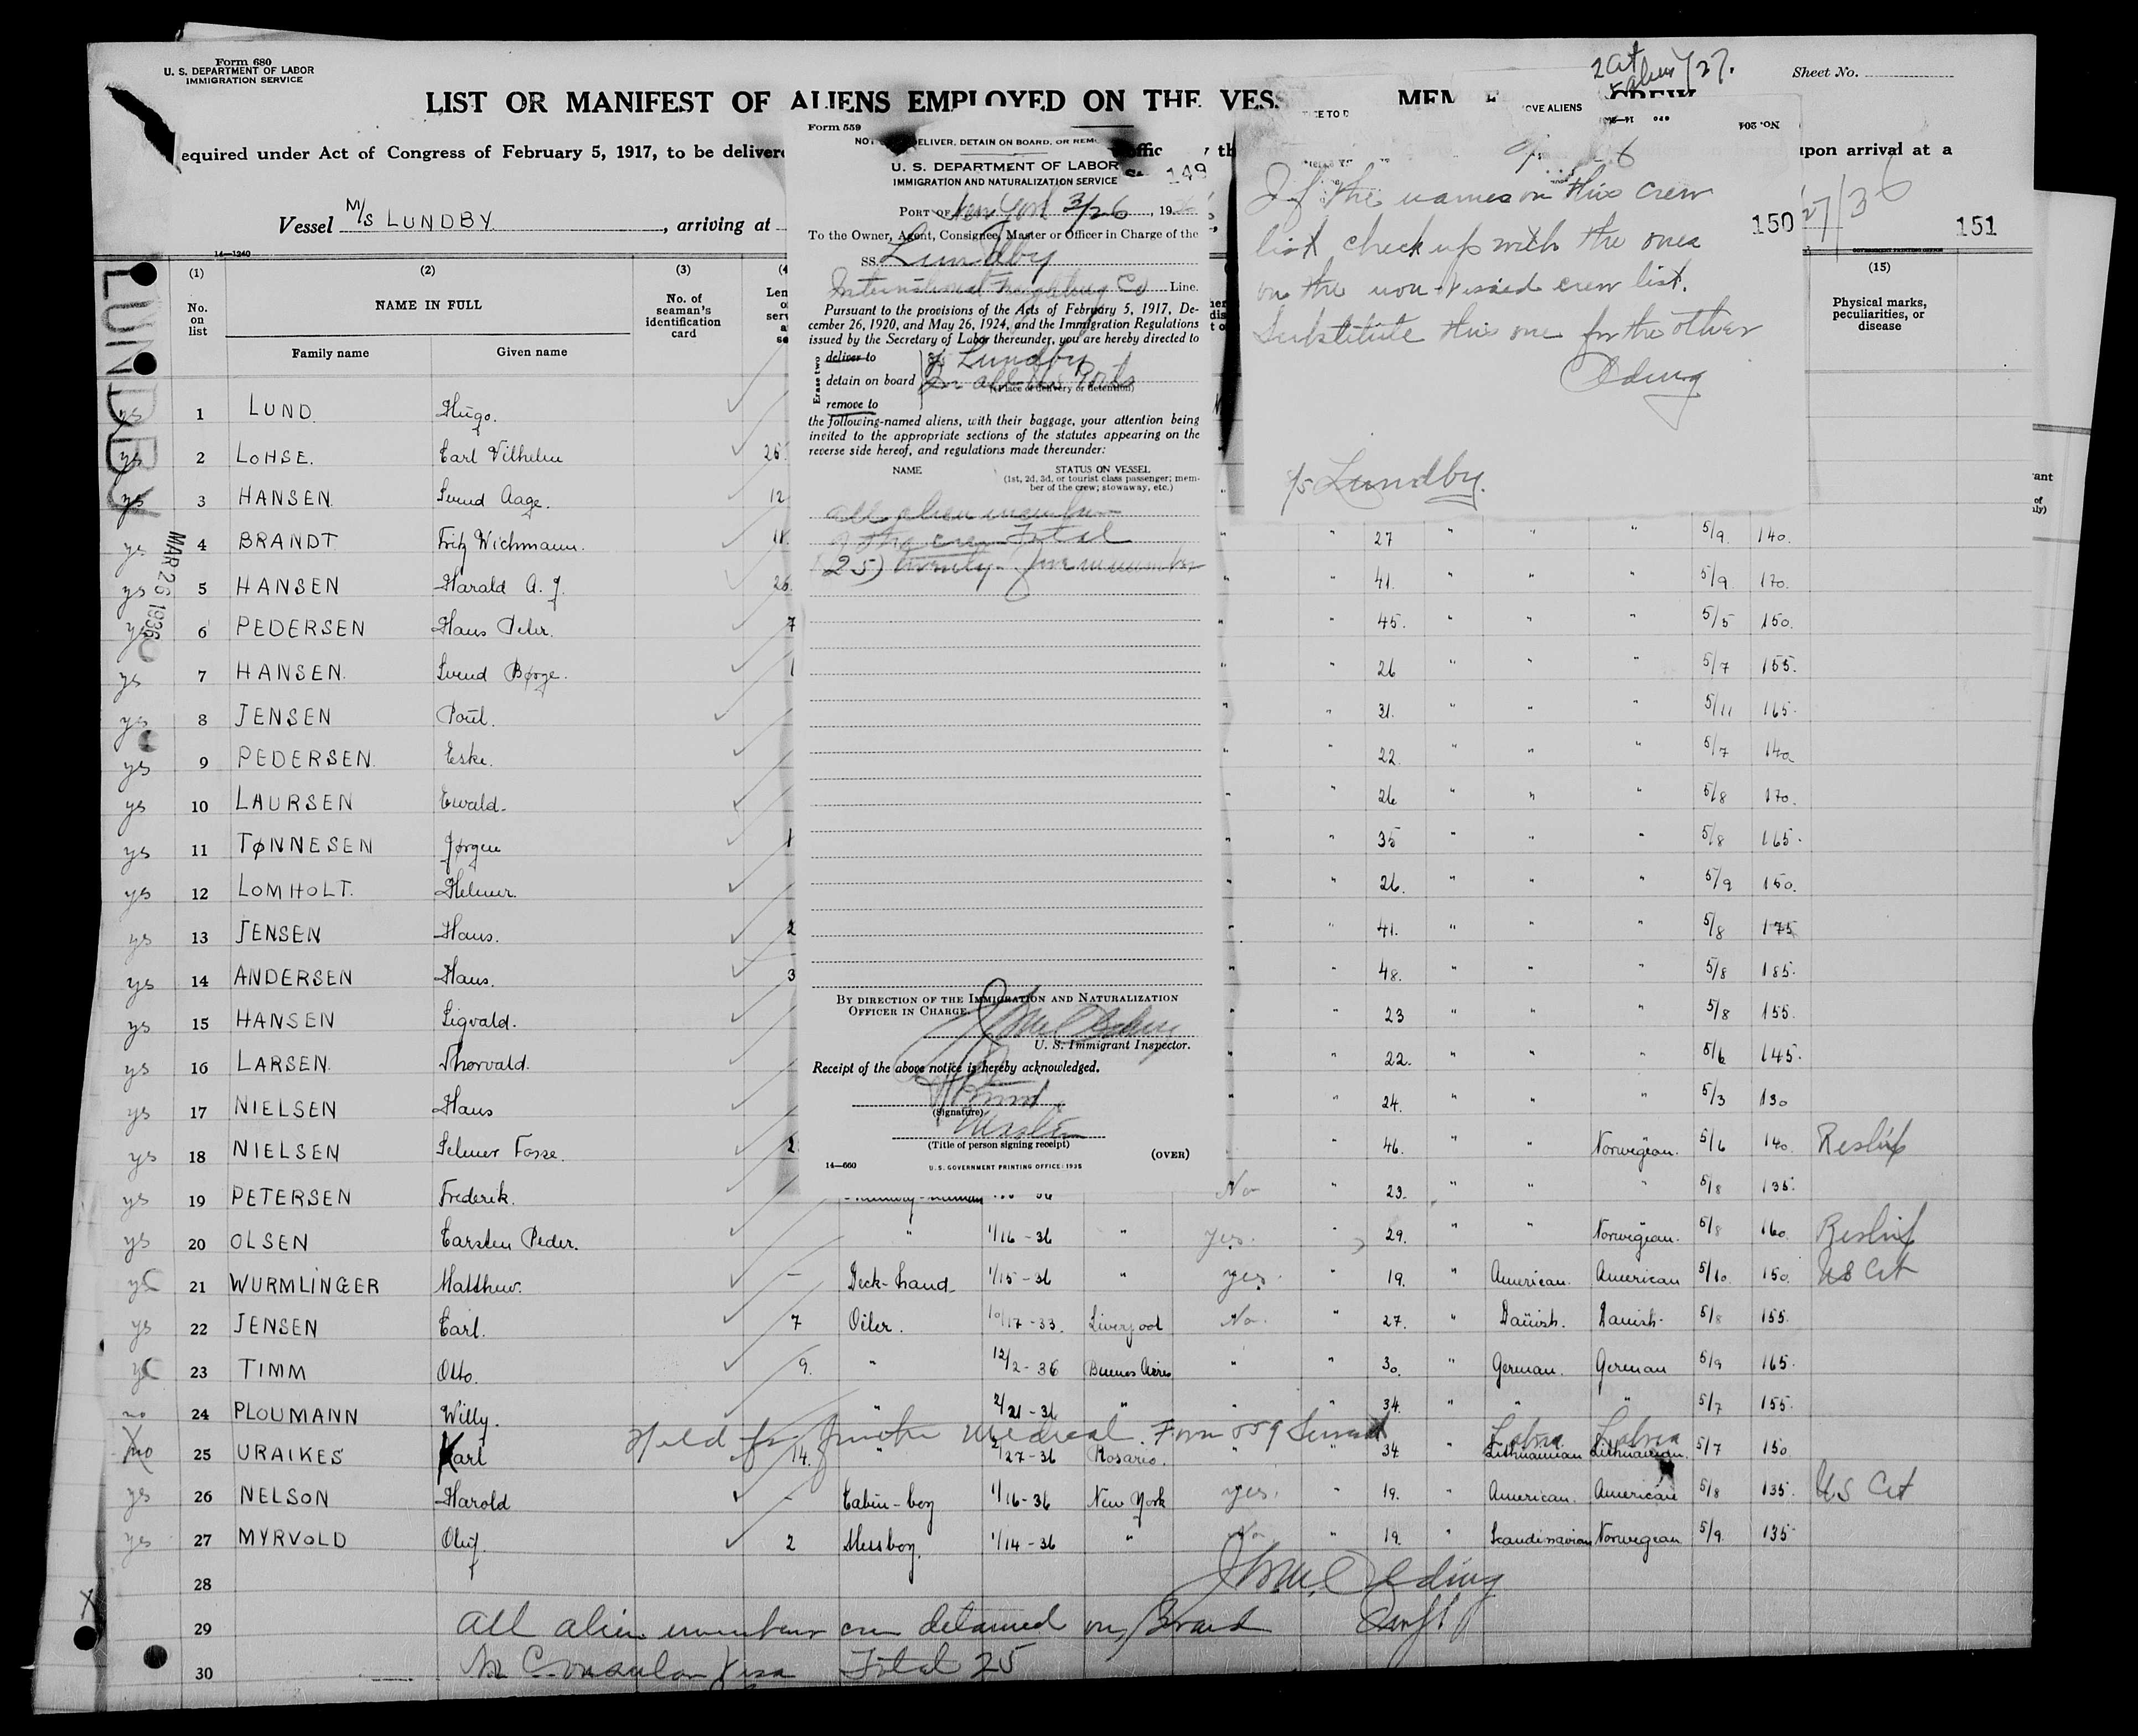 Form 680
U. S. DEPARTMENT OF LABOR
IMMIGRATION SERVICE
Sheet No.
LIST OR MANIFEST OF ALIENS EMPLOYED ON THE VESS MEM CREW
equired under Act of Congress of February 5, 1917, to be delivere
upon arrival at a
Vessel M/S LUNDBY, arriving at
14—1240
LUNDBY
MAR 26 1936
Form 559
DELIVER, DETAIN ON BOARD, OR REM
U. S. DEPARTMENT OF LABOR
IMMIGRATION AND NATURALIZATION SERVICE
149
PORT OF New York 3/26, 19
To the Owner, Agent, Consignee, Master or Officer in Charge of the
SS. Lundby
International Freighting Co Line.
Pursuant to the provisions of the Acts of February 5, 1917, De-
cember 26, 1920, and May 26, 1924, and the Immigration Regulations
issued by the Secretary of Labor thereunder, you are hereby directed to
Erase two
deliver to
detain on board
remove to
Lundby
in all U.S. Ports
(Place of delivery or detention)
the following-named aliens, with their baggage, your attention being
invited to the appropriate sections of the statutes appearing on the
reverse side hereof, and regulations made thereunder:
NAME STATUS ON VESSEL
(1st, 2d, 3d, or tourist class passenger; mem-
ber of the crew; stowaway, etc.)
all alien members
of the crew Total
(25) twenty-five members
BY DIRECTION OF THE IMMIGRATION AND NATURALIZATION
OFFICER IN CHARGE.
U. S. Immigrant Inspector.
Receipt of the above notice is hereby acknowledged.
(Signature)
Master
(Title of person signing receipt)
(OVER)
14—660 U. S. GOVERNMENT PRINTING OFFICE: 1935
OVE ALIENS
No. 204
If the names on this crew
list check up with the ones
on the non-visaed crew list.
Substitute this one for the other
Oding
S/S Lundby.
150
27/36
151
(1) (2) (3) (15)
No. on list
NAME IN FULL
Family name Given name
No. of seaman's identification card
Physical marks, peculiarities, or disease
ys 1 LUND. Hugo.
ys 2 LOHSE. Carl Vilhelm 25
ys 3 HANSEN. Svend Aage. 12
ys 4 BRANDT Fritz Wichmann. " 27 " " " 5/9. 140.
ys 5 HANSEN Harald A. J. 26 " 41. " " " 5/9 170.
ys 6 PEDERSEN Hans Peter. 7 " 45. " " " 5/5 150.
ys 7 HANSEN. Svend Børge. 1 " 26 " " " 5/7 155.
ys 8 JENSEN Poul. " 31. " " " 5/11 165.
ys 9 PEDERSEN. Eske. " 22. " " " 5/7 140
ys 10 LAURSEN Ewald. " 26 " " " 5/8 170.
ys 11 TØNNESEN Jørgen 1 " 35 " " " 5/8 165.
ys 12 LOMHOLT. Helmer. " 26. " " " 5/9 150.
ys 13 JENSEN Hans. 2 " 41. " " " 5/8 175
ys 14 ANDERSEN Hans. 3 " 48. " " " 5/8 185.
ys 15 HANSEN Sigvald. " 23 " " " 5/8 155.
ys 16 LARSEN. Thorvald. " 22. " " " 5/6 145.
ys 17 NIELSEN Hans " 24. " " " 5/3 130
ys 18 NIELSEN Selmer Fosse. 2 " 46. " " Norwegian. 5/6 140.
ys 19 PETERSEN Frederik. No " 23. " " " 5/8 135.
ys 20 OLSEN Carsten Peder. " 1/16-36 " Yes. " 29. " " Norwegian. 5/8 160.
ys 21 WURMLINGER Matthew. - Deck-hand. 1/15-36 " yes. " 19. " American. American 5/10. 150. US Cit
ys 22 JENSEN Carl. 7 Oiler. 10/17-33. Liverpool No. " 27. " Danish. Danish. 5/8 155.
ys 23 TIMM Otto. 9. " 12/2-36 Buenos Aires " " 30. " German. German 5/9 165.
no 24 PLOUMANN Willy. " 2/21-36 " " " 34. " " " 5/7 155.
Held for further Medical. Form 559 Served
no 25 URAIKES Karl 14. " 2/27-36 Rosario. " " 34 " Lithuanian Lithuanian. 5/7 150
yes 26 NELSON Harold - Cabin-boy 1/16-36 New York yes. " 19. " American. American 5/8 135. US Cit
yes 27 MYRVOLD Oluf 2 Messboy. 1/14-36 " No " 19. " Scandinavian Norwegian 5/9. 135
28
29 All alien members crew detained on Board
30 No Consular Visa Total 25